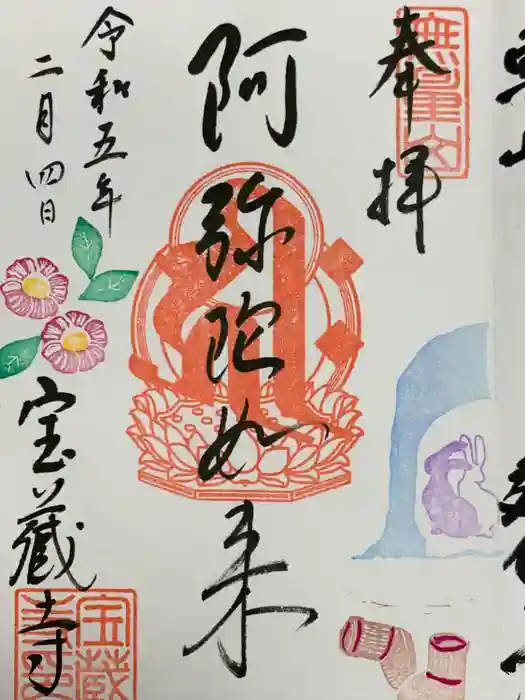 奉拝
無量山
阿弥陀如来
令和五年
二月四日
宝蔵寺
宝蔵